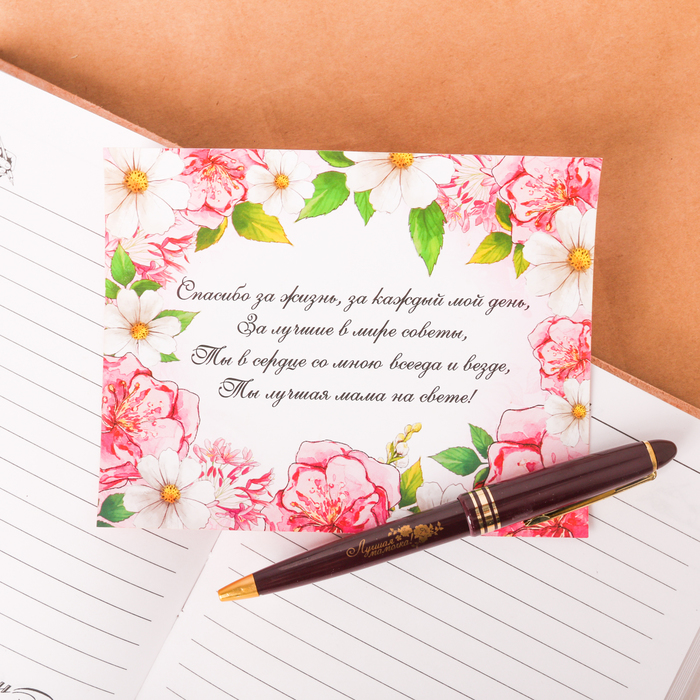 Спасибо за жизнь, за каждый мой день,
За лучшие в мире советы,
Ты в сердце со мною всегда и везде,
Ты лучшая мама на свете!
Лучшая
мамочка!